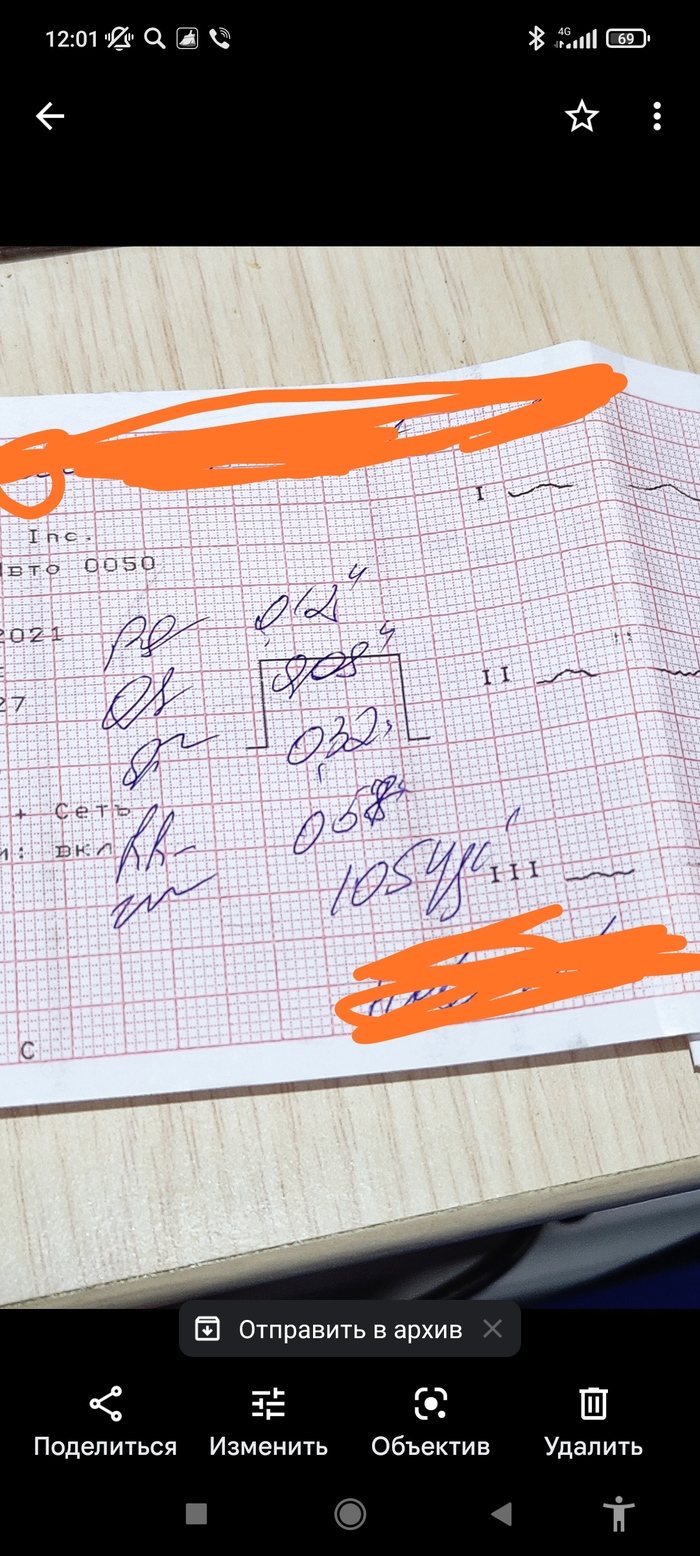 12:01 4G 69
I
Inc.
вто 0050
2021
PQ 0,12"
27
QS 0,08"
II
QT 0,32"
+ Сеть
: вкл
RR- 0,5
105 уд'
III
C
Отправить в архив
Поделиться Изменить Объектив Удалить